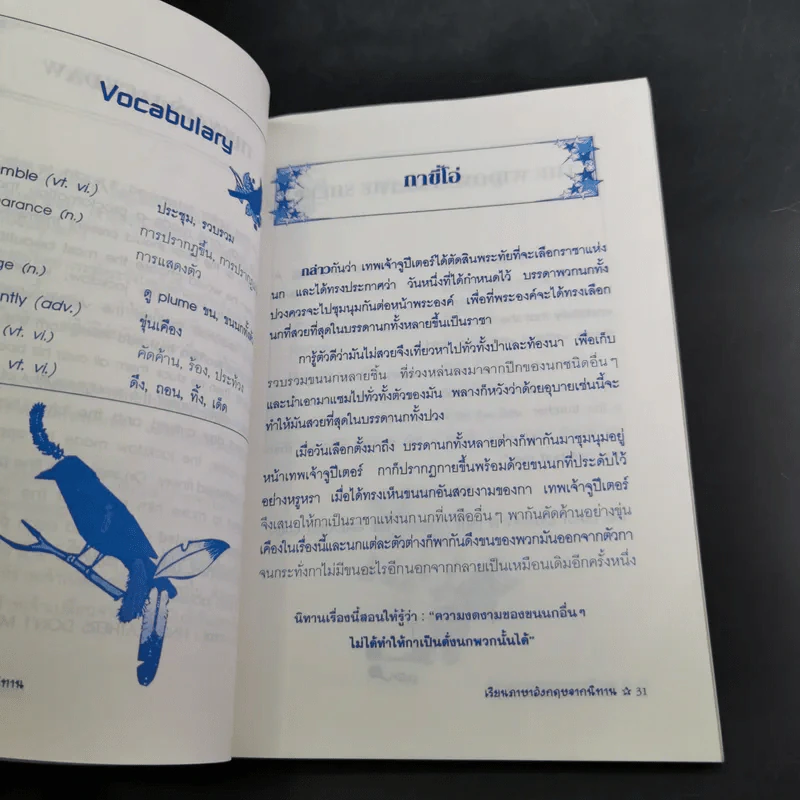 Vocabulary
mble (vt. vi.)
ประชุม, รวบรวม
arance (n.)
การปรากฏขึ้น, การปรากฏ
การแสดงตัว
ge (n.)
ดู plume ขน, ขนนกทั้ง
ntly (adv.)
ขุ่นเคือง
(vt. vi.)
คัดค้าน, ร้อง, ประท้วง
t. vi.)
ดึง, ถอน, ทิ้ง, เด็ด
ทาน
กาขี้โอ่
กล่าวกันว่า เทพเจ้าจูปีเตอร์ได้ตัดสินพระทัยที่จะเลือกราชาแห่ง
นก และได้ทรงประกาศว่า วันหนึ่งที่ได้กำหนดไว้ บรรดาพวกนกทั้ง
ปวงควรจะไปชุมนุมกันต่อหน้าพระองค์ เพื่อที่พระองค์จะได้ทรงเลือก
นกที่สวยที่สุดในบรรดานกทั้งหลายขึ้นเป็นราชา
การู้ตัวดีว่ามันไม่สวยจึงเที่ยวหาไปทั่วทั้งป่าและท้องนา เพื่อเก็บ
รวบรวมขนนกหลายชิ้น ที่ร่วงหล่นลงมาจากปีกของนกชนิดอื่นๆ
และนำเอามาแซมไปทั่วทั้งตัวของมัน พลางก็หวังว่าด้วยอุบายเช่นนี้จะ
ทำให้มันสวยที่สุดในบรรดานกทั้งปวง
เมื่อวันเลือกตั้งมาถึง บรรดานกทั้งหลายต่างก็พากันมาชุมนุมอยู่
หน้าเทพเจ้าจูปีเตอร์ กาก็ปรากฏกายขึ้นพร้อมด้วยขนนกที่ประดับไว้
อย่างหรูหรา เมื่อได้ทรงเห็นขนนกอันสวยงามของกา เทพเจ้าจูปีเตอร์
จึงเสนอให้กาเป็นราชาแห่งนกนกที่เหลืออื่นๆ พากันคัดค้านอย่างขุ่น
เคืองในเรื่องนี้และนกแต่ละตัวต่างก็พากันดึงขนของพวกมันออกจากตัวกา
จนกระทั่งกาไม่มีขนอะไรอีกนอกจากกลายเป็นเหมือนเดิมอีกครั้งหนึ่ง
นิทานเรื่องนี้สอนให้รู้ว่า : "ความงดงามของขนนกอื่นๆ
ไม่ได้ทำให้กาเป็นดั่งนกพวกนั้นได้"
เรียนภาษาอังกฤษจากนิทาน ☆ 31